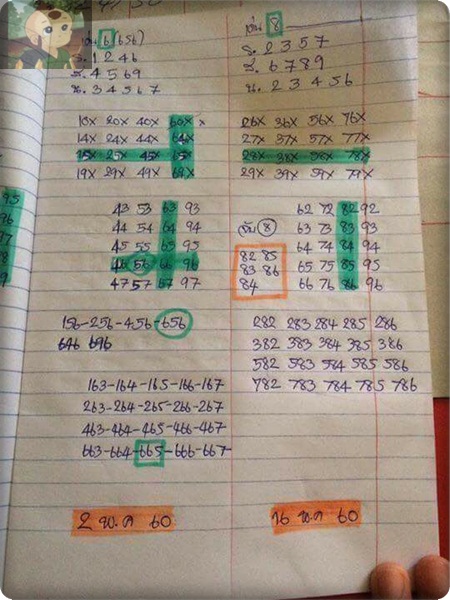 6 (656)
ร. 1 2 4 6
ส. 4 5 6 9
น. 3 4 5 6 7
16x 26x 46x 66x x
14x 24x 44x 64x
15x 25x 45x 65x
19x 29x 49x 69x
43 53 63 93
44 54 64 94
45 55 65 95
46 56 66 96
47 57 67 97
156-256-456-656
646 696
163-164-165-166-167
263-264-265-266-267
463-464-465-466-467
663-664-665-666-667
2 พ.ค 60
เด่น 8
ร. 2 3 5 7
ส. 6 7 8 9
น. 2 3 4 5 6
26x 36x 56x 76x
27x 37x 57x 77x
28x 38x 58x 78x
29x 39x 59x 79x
62 72 82 92
63 73 83 93
64 74 84 94
65 75 85 95
66 76 86 96
8
82 85
83 86
84
282 283 284 285 286
382 383 384 385 386
582 583 584 585 586
782 783 784 785 786
16 พ.ค 60
95
96
97